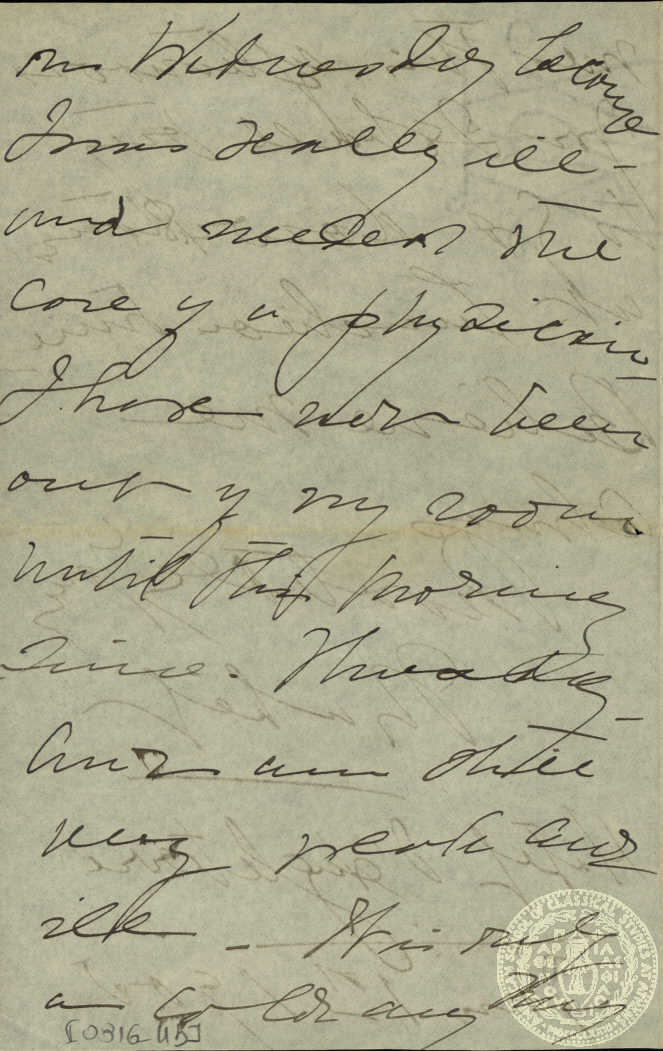 on Wednesday because
I was really ill –
and needed the
care of a physician –
I have not been
out of my room
until this morning
since Thursday –
and am still
very weak and
ill – It is only
a cold any
[0316 (15)]